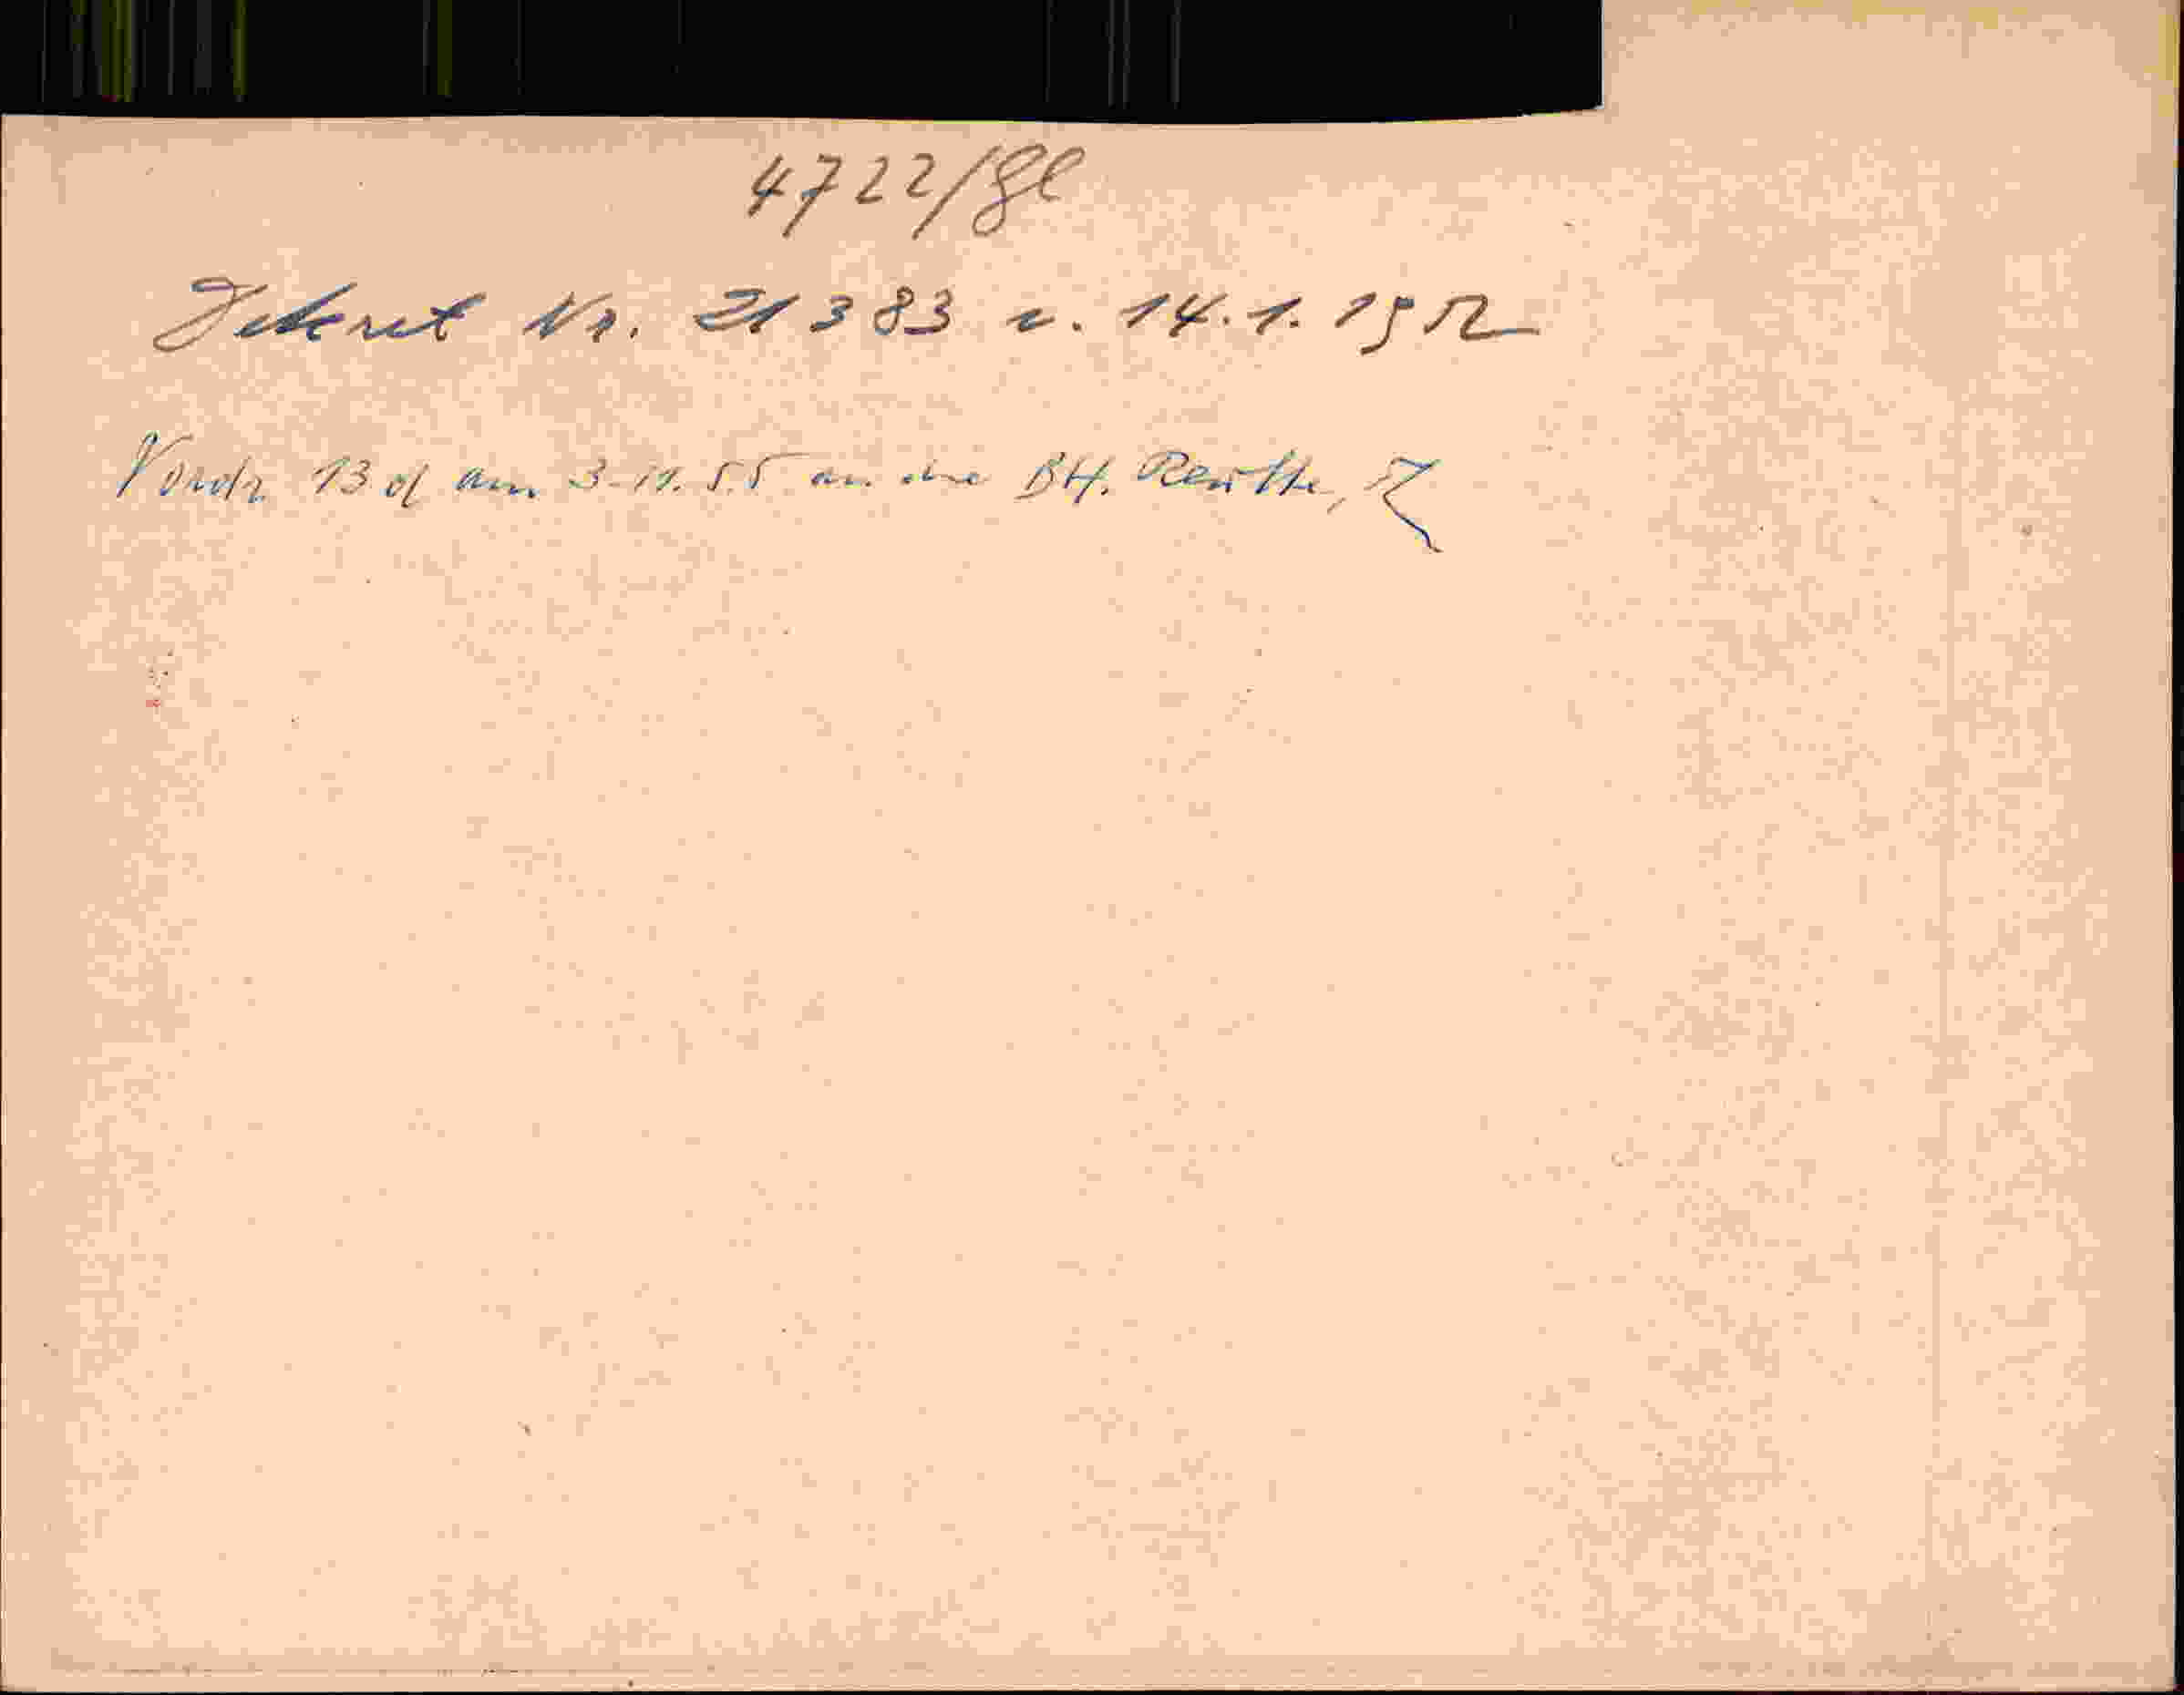 4722/gl
Dekret Nr. 21383 v. 14.1.1952
Vordr. 13 d am 3.11.55 an die BH. Reutte,